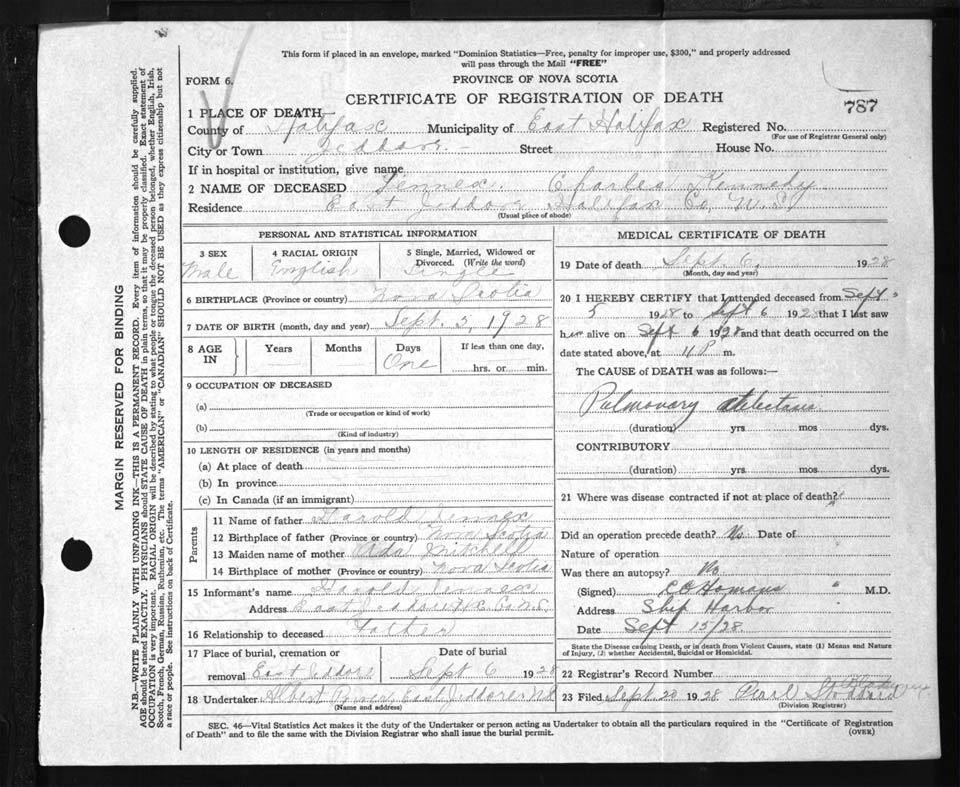 This form if placed in an envelope, marked "Dominion Statistics—Free, penalty for improper use, $300," and properly addressed
will pass through the Mail "FREE"
FORM 6.
PROVINCE OF NOVA SCOTIA
CERTIFICATE OF REGISTRATION OF DEATH
787
1 PLACE OF DEATH—
County of Halifax Municipality of East Halifax Registered No.
(For use of Registrar General only)
City or Town Jeddore Street House No.
If in hospital or institution, give name
2 NAME OF DECEASED Jennex. Charles Kennedy
Residence East Jeddore Halifax Co, N.S.
(Usual place of abode)
PERSONAL AND STATISTICAL INFORMATION
3 SEX 4 RACIAL ORIGIN 5 Single, Married, Widowed or
Divorced. (Write the word)
Male English Single
6 BIRTHPLACE (Province or country) Nova Scotia
7 DATE OF BIRTH (month, day and year) Sept. 5, 1928
8 AGE IN Years Months Days If less than one day,
One hrs. or min.
9 OCCUPATION OF DECEASED
(a)
(Trade or occupation or kind of work)
(b)
(Kind of industry)
10 LENGTH OF RESIDENCE (in years and months)
(a) At place of death
(b) In province
(c) In Canada (if an immigrant)
Parents
11 Name of father Harold Jennex
12 Birthplace of father (Province or country) Nova Scotia
13 Maiden name of mother Ada Mitchell
14 Birthplace of mother (Province or country) Nova Scotia
15 Informant's name Harold Jennex
Address East Jeddore Hfx Co N.S.
16 Relationship to deceased Father
17 Place of burial, cremation or Date of burial
removal East Jeddore Sept 6 1928
18 Undertaker Albert East Jeddore N.S.
(Name and address)
MEDICAL CERTIFICATE OF DEATH
19 Date of death Sept. 6, 1928
(Month, day and year)
20 I HEREBY CERTIFY that I attended deceased from Sept
5 1928 to Sept 6 1928 that I last saw
him alive on Sept 6 1928 and that death occurred on the
date stated above, at 11 P m.
The CAUSE of DEATH was as follows:—
Pulmonary atelectasis
(duration) yrs mos dys.
CONTRIBUTORY
(duration) yrs. mos. dys.
21 Where was disease contracted if not at place of death?
Did an operation precede death? No. Date of
Nature of operation
Was there an autopsy? No
(Signed) C O Homans M.D.
Address Ship Harbor
Date Sept 15/28.
State the Disease causing Death, or in death from Violent Causes, state (1) Means and Nature
of Injury, (2) whether Accidental, Suicidal or Homicidal.
22 Registrar's Record Number
23 Filed Sept 20 1928 Pearl
(Division Registrar)
SEC. 46—Vital Statistics Act makes it the duty of the Undertaker or person acting as Undertaker to obtain all the particulars required in the "Certificate of Registration
of Death" and to file the same with the Division Registrar who shall issue the burial permit.
(OVER)
MARGIN RESERVED FOR BINDING
N.B.—WRITE PLAINLY WITH UNFADING INK—THIS IS A PERMANENT RECORD. Every item of information should be carefully supplied.
AGE should be stated EXACTLY. PHYSICIANS should STATE CAUSE OF DEATH in plain terms, so that it may be properly classified. Exact statement of
OCCUPATION is very important. RACIAL ORIGIN will be described by stating to what people or tongue the deceased person belonged, whether English, Irish,
Scotch, French, German, Russian, Ruthenian, etc. The terms "AMERICAN" or "CANADIAN" SHOULD NOT BE USED as they express citizenship but not
a race or people. See instructions on back of Certificate.